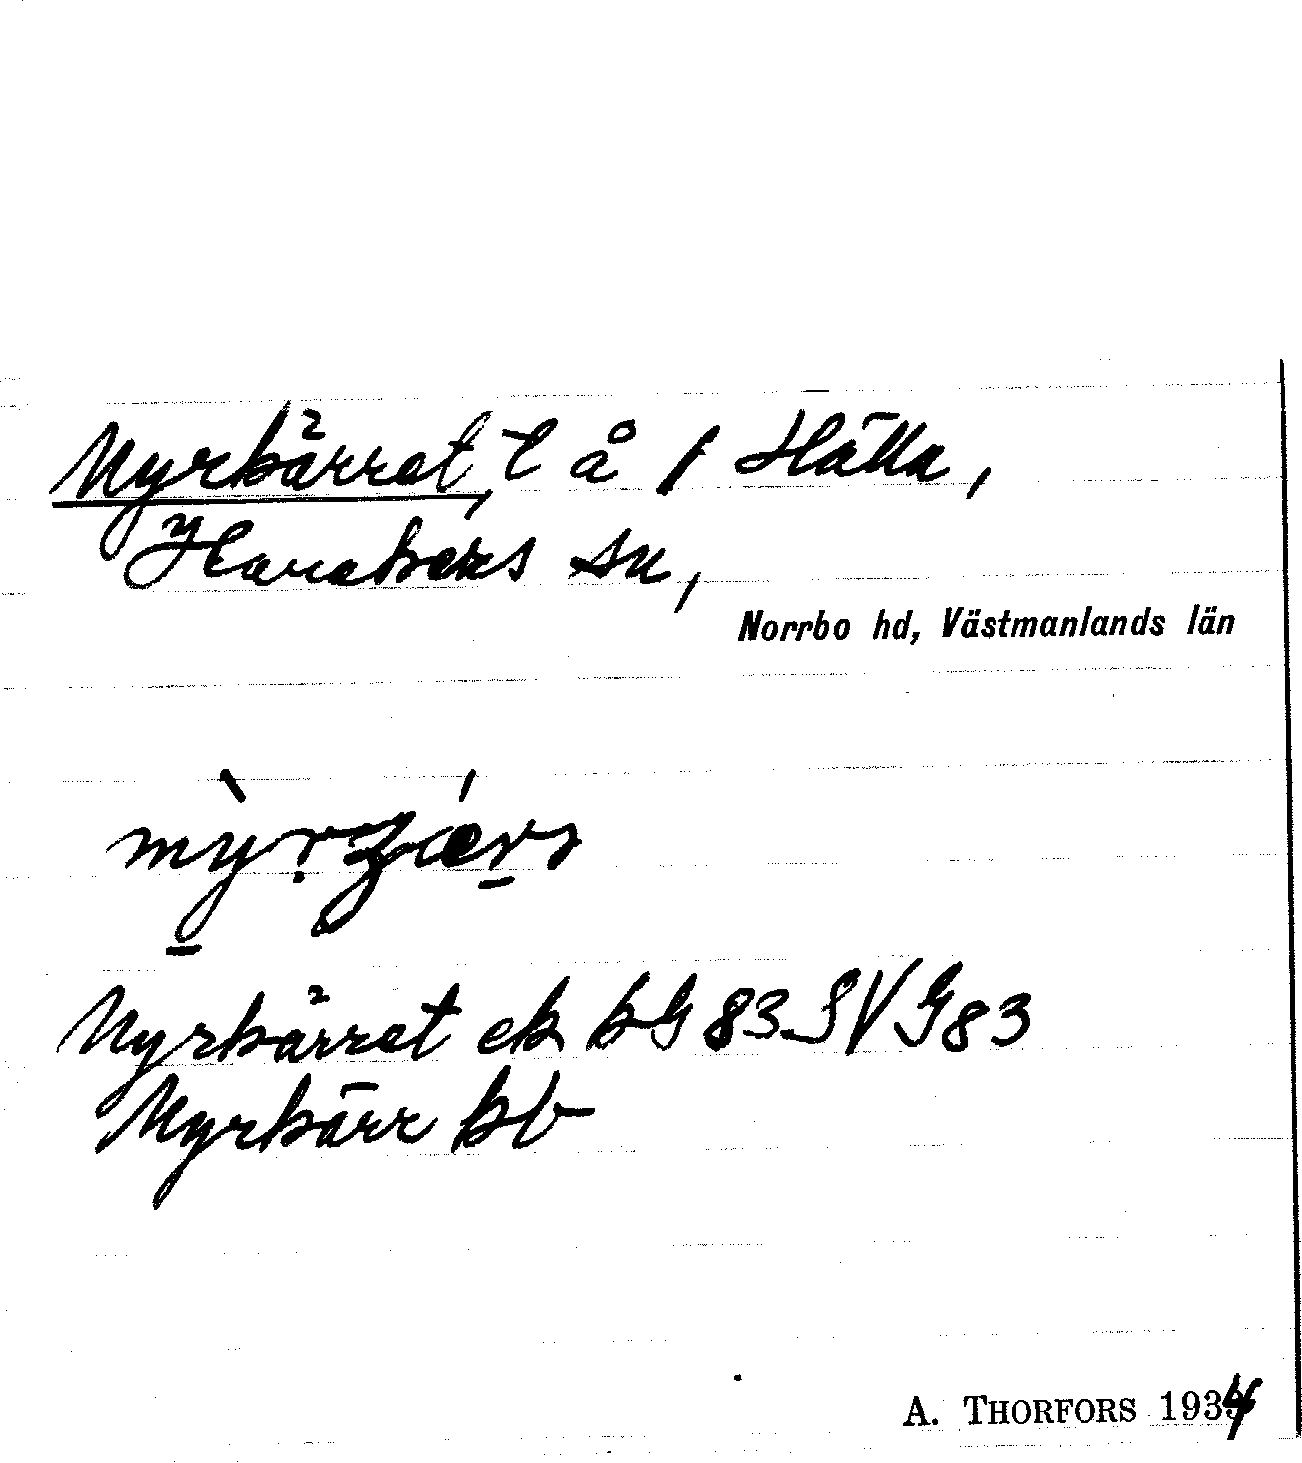 Myrkärret, l å / Hälla,
Harakers sn,
Norrbo hd, Västmanlands län
Myrkärret ek bG 83 SV G 83
Myrkärr kb
A. THORFORS 1934